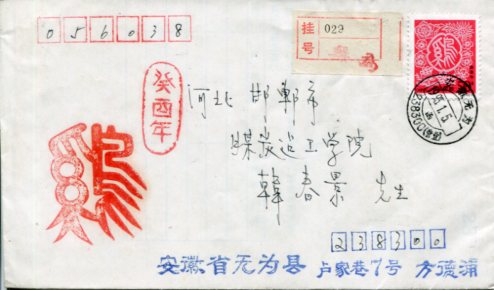 056038
挂号 029
癸酉年
河北 邯郸市
煤炭建工学院
韩春景 先生
238300
安徽省无为县 卢家巷7号 方德浦